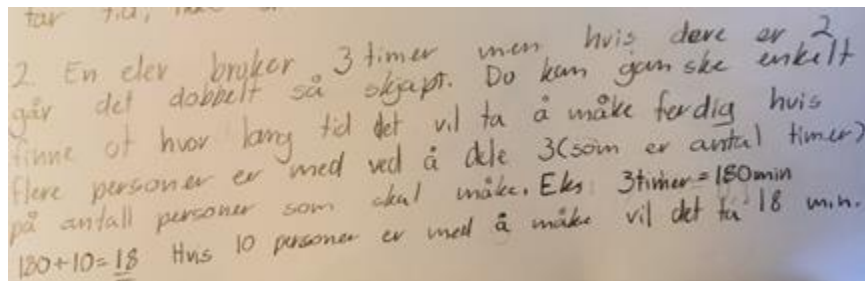 tar tid,
2. En elev bruker 3 timer men hvis dere er 2
går det dobbelt så skjapt. Du kan ganske enkelt
finne ut hvor lang tid det vil ta å måke ferdig hvis
flere personer er med ved å dele 3(som er antal timer)
på antall personer som skal måke. Eks 3timer=180min
180÷10=18 Hvis 10 personer er med å måke vil det ta 18 min.